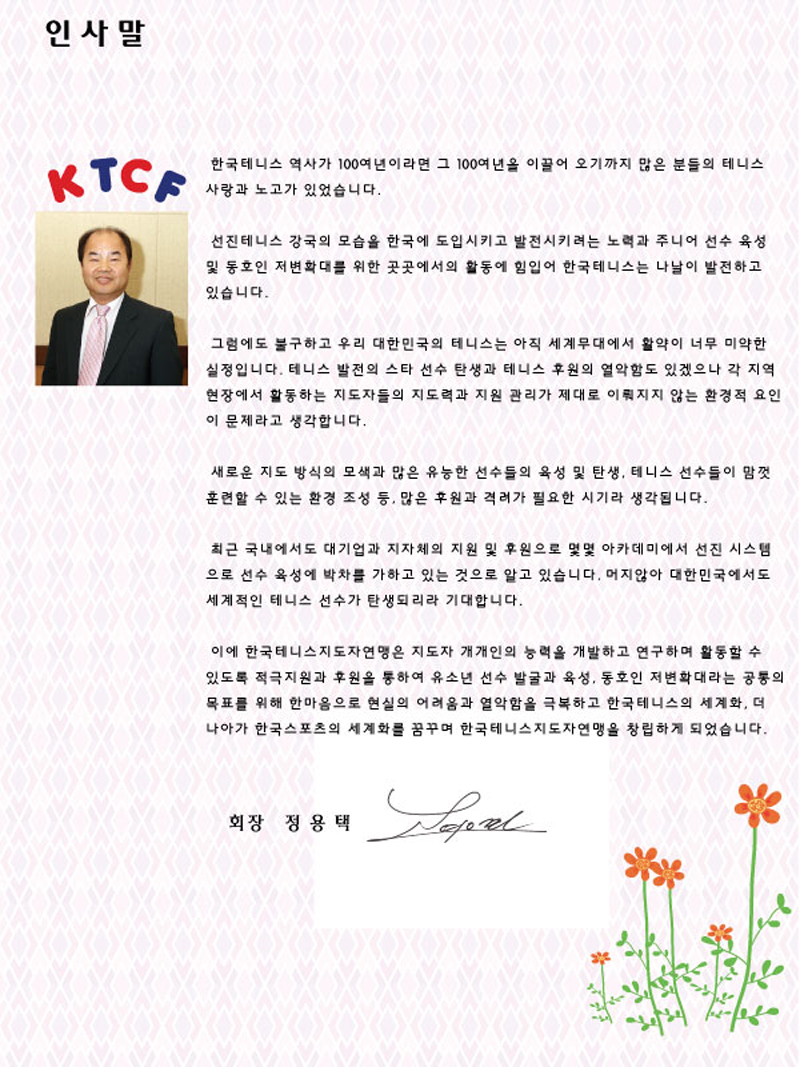 인 사 말
KTCF
한국테니스 역사가 100여년이라면 그 100여년을 이끌어 오기까지 많은 분들의 테니스
사랑과 노고가 있었습니다.
선진테니스 강국의 모습을 한국에 도입시키고 발전시키려는 노력과 주니어 선수 육성
및 동호인 저변확대를 위한 곳곳에서의 활동에 힘입어 한국테니스는 나날이 발전하고
있습니다.
그럼에도 불구하고 우리 대한민국의 테니스는 아직 세계무대에서 활약이 너무 미약한
실정입니다. 테니스 발전의 스타 선수 탄생과 테니스 후원의 열악함도 있겠으나 각 지역
현장에서 활동하는 지도자들의 지도력과 지원 관리가 제대로 이뤄지지 않는 환경적 요인
이 문제라고 생각합니다.
새로운 지도 방식의 모색과 많은 유능한 선수들의 육성 및 탄생, 테니스 선수들이 맘껏
훈련할 수 있는 환경 조성 등, 많은 후원과 격려가 필요한 시기라 생각됩니다.
최근 국내에서도 대기업과 지자체의 지원 및 후원으로 몇몇 아카데미에서 선진 시스템
으로 선수 육성에 박차를 가하고 있는 것으로 알고 있습니다. 머지않아 대한민국에서도
세계적인 테니스 선수가 탄생되리라 기대합니다.
이에 한국테니스지도자연맹은 지도자 개개인의 능력을 개발하고 연구하며 활동할 수
있도록 적극지원과 후원을 통하여 유소년 선수 발굴과 육성, 동호인 저변확대라는 공통의
목표를 위해 한마음으로 현실의 어려움과 열악함을 극복하고 한국테니스의 세계화, 더
나아가 한국스포츠의 세계화를 꿈꾸며 한국테니스지도자연맹을 창립하게 되었습니다.
회장 정 용 택